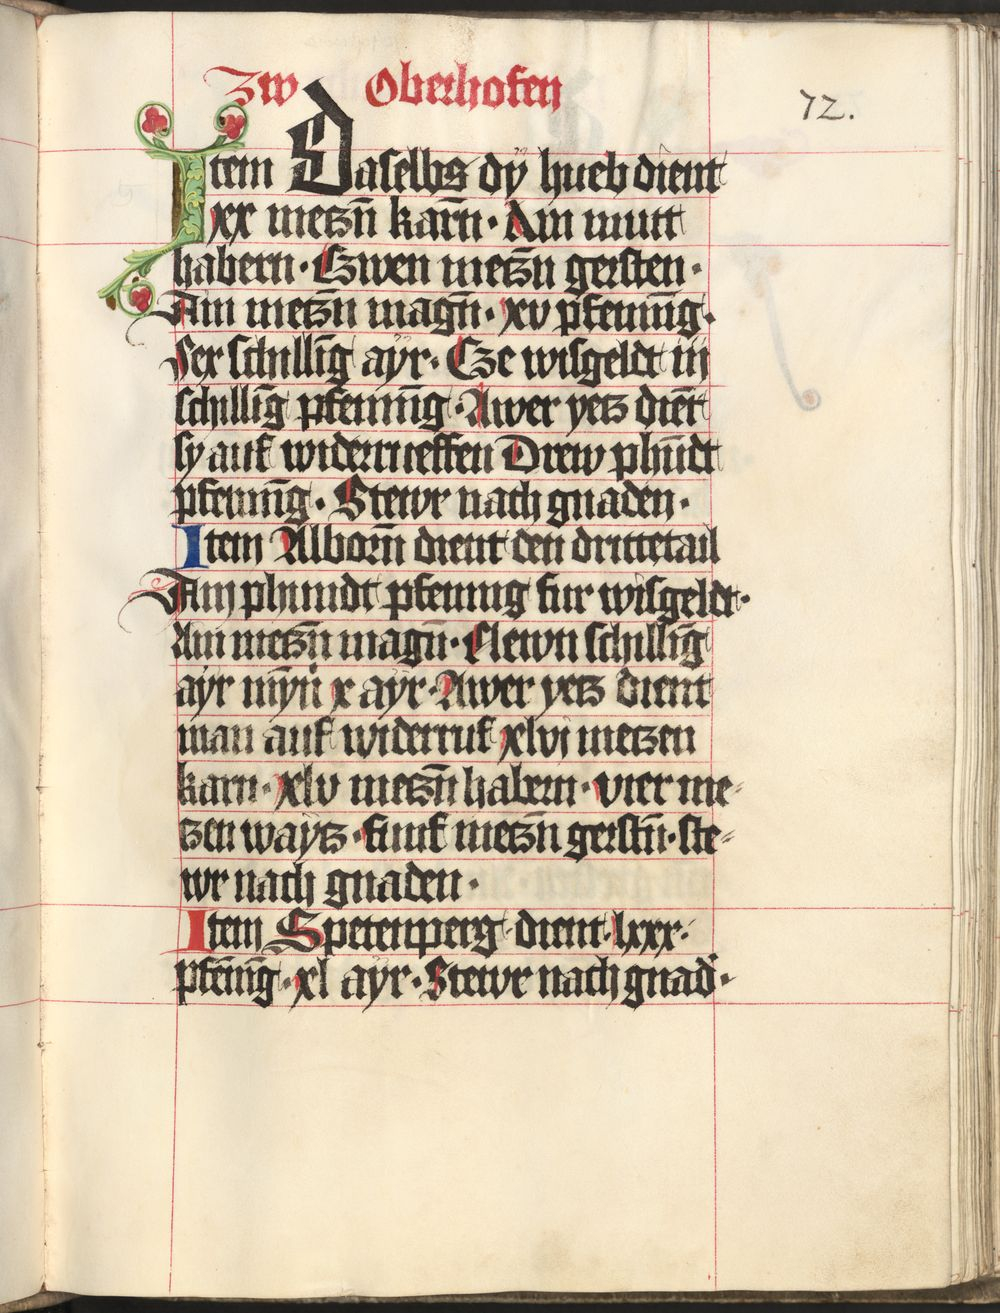 Zw Oberhofen
72.
Item Daselbs dÿ hueb dient
xx metzn̄ karn̄ · Ain mutt
habern · Czwen metzn̄ gersten ·
Ain metzn̄ magn̄ · xv pfenni̅g ·
Sex schilli̅g aÿr · Cze wisgeldt iij
schilli̅g pfenni̅g · Awer yetz die̅t
sy auf widerrueffen Drew phu̅dt
pfenni̅g · Stewr nach gnaden ·
Item Alborn̄ dient den drittetail
Ain phundt pfennig fur wisgeldt ·
Ain metzn̄ magn̄ · Newn schilli̅g
aÿr myn̄ x aÿr · Awer yetz dient
man auf widerruf xlvi metzen
karn · xlv metzn̄ habern · vier me-
tzen waÿtz · funf metzn̄ gerstn̄ · ste-
wr nach gnaden ·
Item Spetenperg · dient · lxxx ·
pfen̄i̅g · xl aÿr · Stewr nach gnad̄ ·